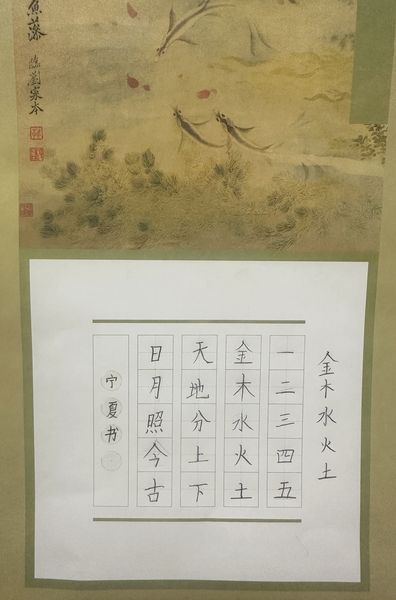 魚藻
臨劉寀本
金木水火土
一二三四五
金木水火土
天地分上下
日月照今古
宁夏书